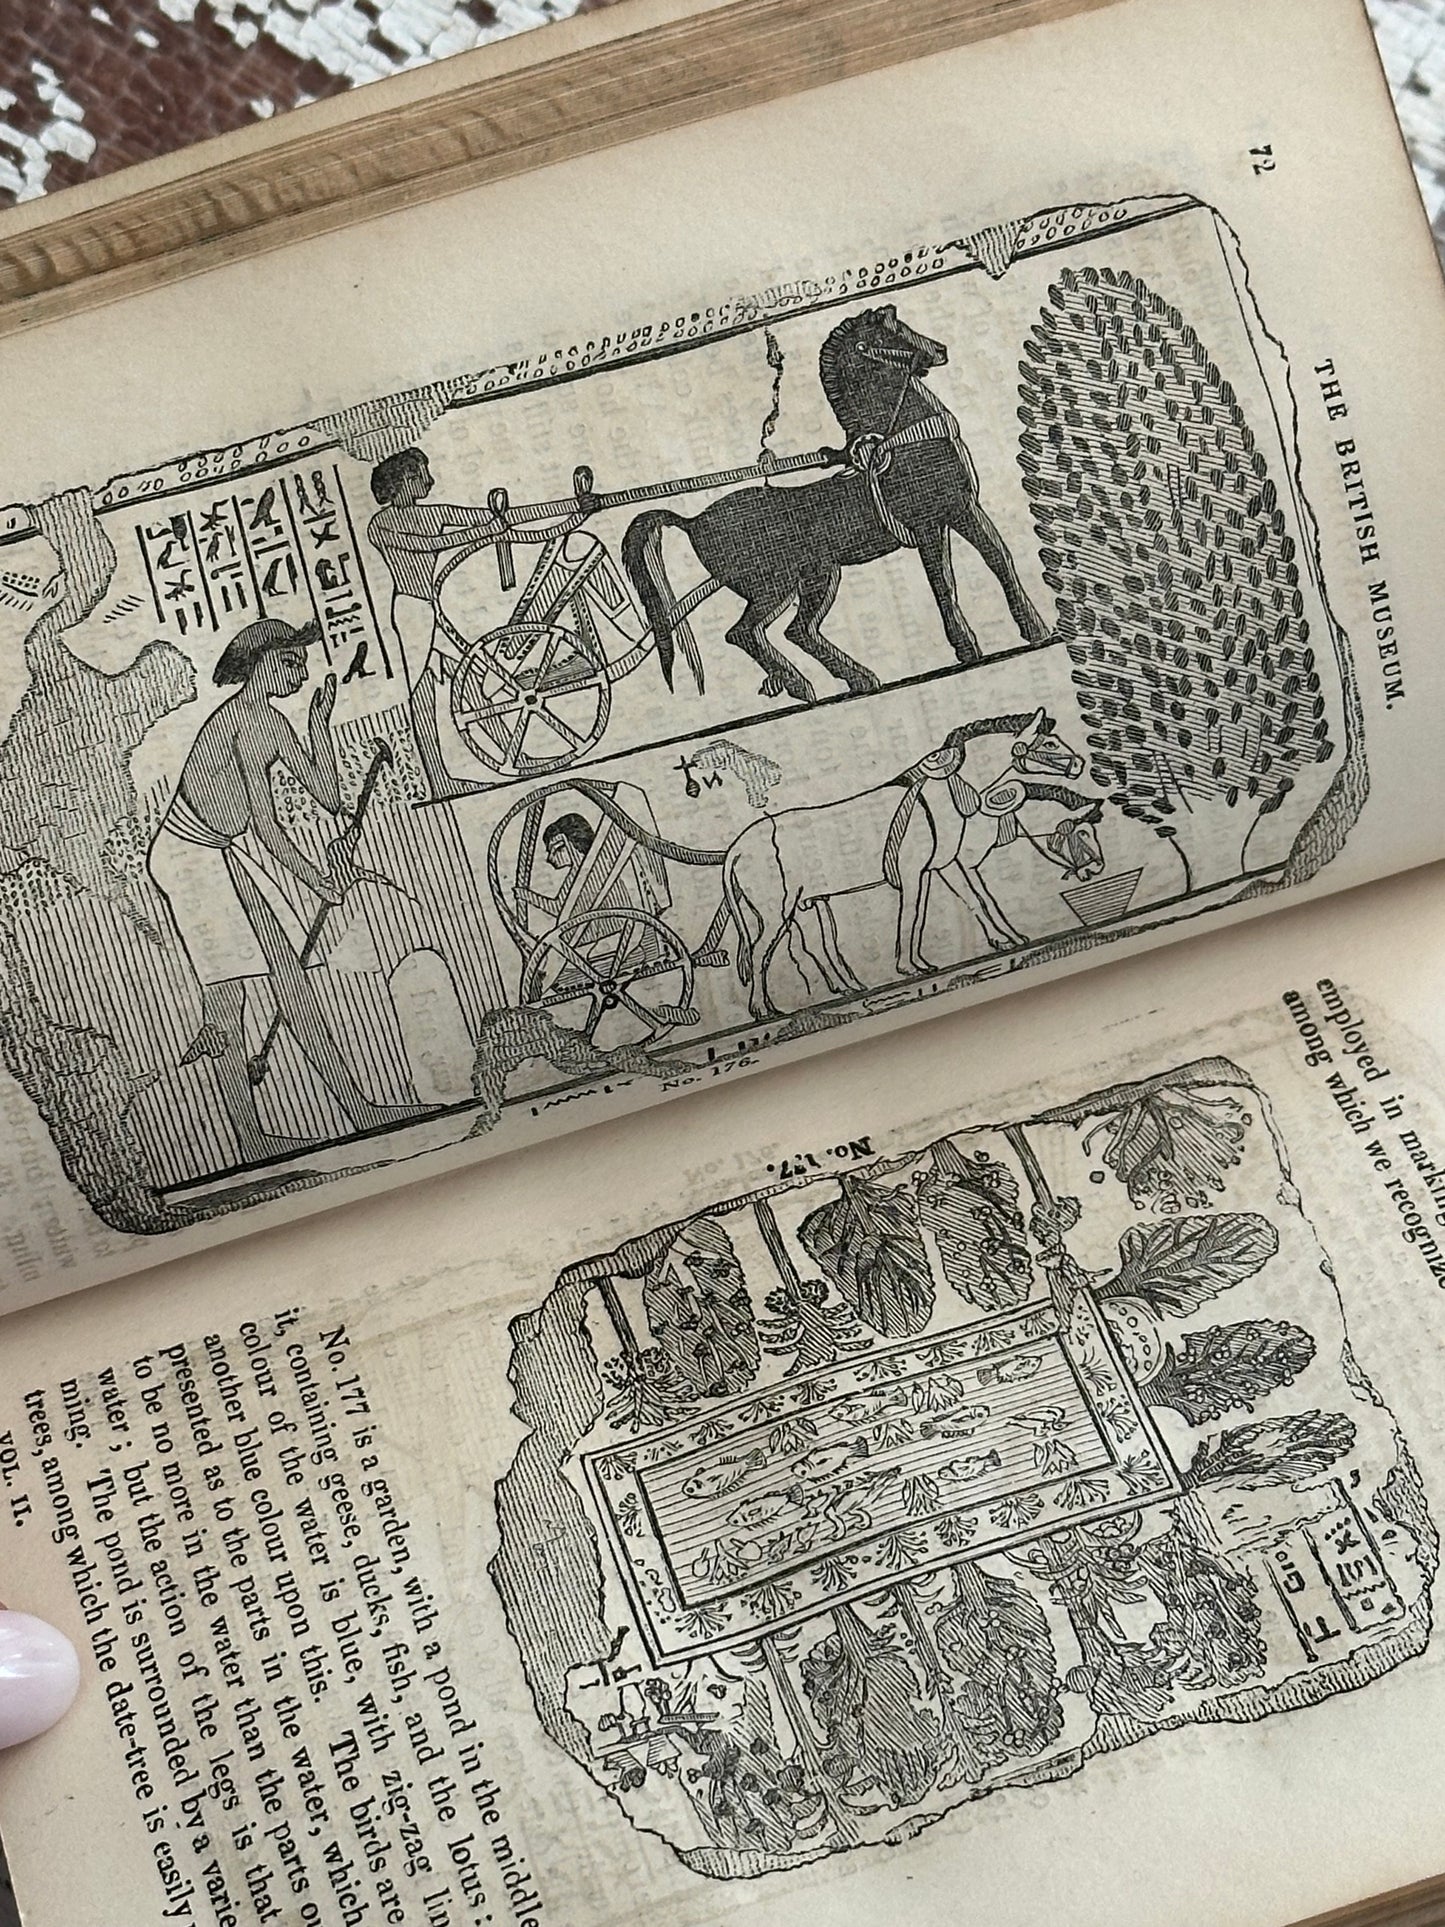 72
THE BRITISH MUSEUM.
No. 176.
No. 177.
employed in marking
among which we recognize
No. 177 is a garden, with a pond in the middle
it, containing geese, ducks, fish, and the lotus:
colour of the water is blue, with zig-zag lin
another blue colour upon this. The birds are
presented as to the parts in the water, which
to be no more in the water than the parts ou
water; but the action of the legs is that
ming. The pond is surrounded by a varie
trees, among which the date-tree is easily
VOL. II.